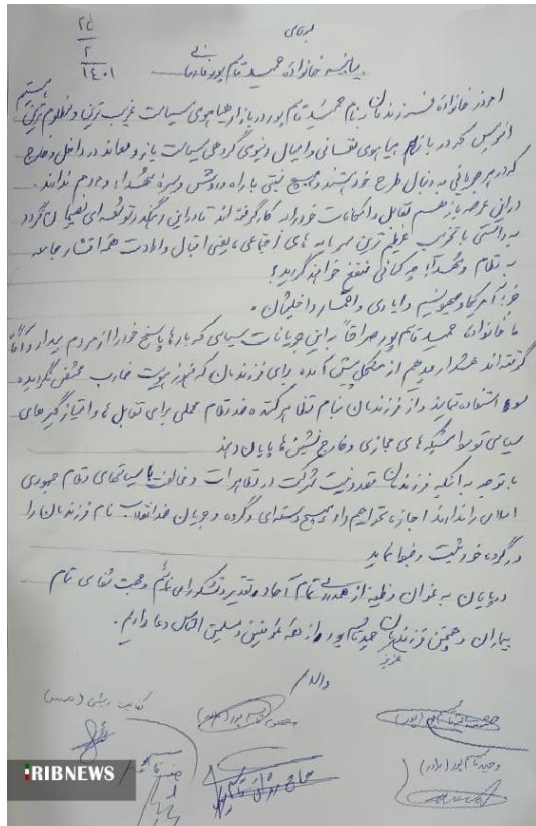 ۲۵
۲
۱۴۰۱
بیانیه خانواده حمید قاسم پور
امروز خانواده فرزندمان بنام حمید قاسم پور در بازار هیاهوی سیاست غریب ترین و مظلوم ترین هستیم
افسوس که در هیاهوی نفسانی و امیال دنیوی گروهی سیاست باز و معاند در داخل و خارج
که در هر جریانی به دنبال طرح خود هستند و هیچ نسبتی با راه و روش و سیره شهدا و مردم ندارند.
در این عرصه باز هم تقابل و امکانات خود را به کار گرفته اند تا در این رهگذر توشه ای نصیبشان گردد
به راستی با تخریب عظیم ترین سرمایه های اجتماعی، یعنی اقبال و ارادت همه اقشار جامعه
به نظام و شهدا؛ چه کسانی منتفع خواهند گردید؟
جز آمریکا و صهیونیسم و ایادی و داخلیشان.
ما خانواده حمید قاسم پور صراحتاً به این جریانات سیاسی که بارها پاسخ خود را از مردم بیدار و آگاه
گرفته اند هشدار میدهیم از مشکل پیش آمده برای فرزندمان که هنوز هویت ضارب مشخص نگردیده
سوء استفاده ننمایند و از فرزندمان بنام تظاهر کننده ضد نظام محملی برای تقابل ها و امتیازگیری های
سیاسی توسط شبکه های مجازی و خارج نشین ها پایان دهند
با توجه به آنکه فرزندمان قصد و نیت شرکت در تظاهرات و مخالفت با سیاستهای نظام جمهوری
اسلامی را ندارند اجازه نخواهیم داد هیچ دسته ای و گروه و جریان ضد انقلاب نام فرزندمان را
در گروه خود ثبت و ضبط نماید
در پایان به عنوان وظیفه از همدردی تمام آحاد تقدیر و تشکر را می نمائیم و جهت شفای تمام
بیماران و همچنین فرزند عزیزمان حمید قاسم پور از همه مؤمنین و مسلمین التماس دعا داریم.
والسلام
وحید قاسم پور (برادر)
RIBNEWS